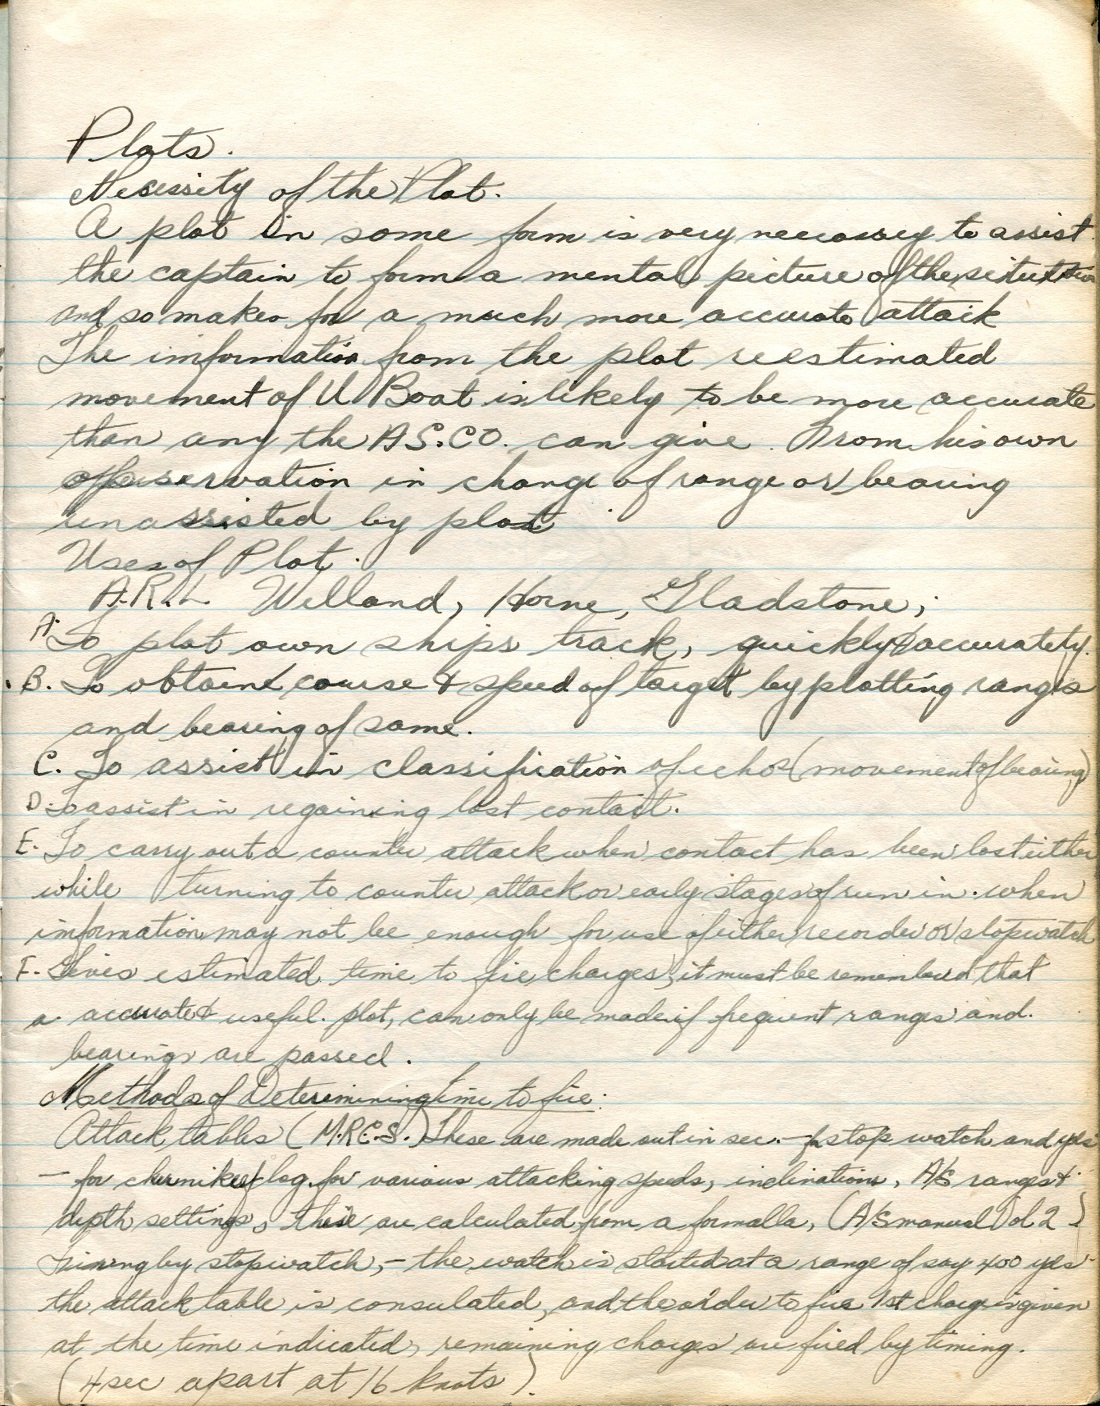 Plots.
Necessity of the Plot.
A plot in some form is very neccessey to assist
the captain to form a mental picture of the situation
and so makes for a much more accurate attack
The information from the plot reestimated
movement of U Boat is likely to be more accurate
than any the A.S.CO. can give. From his own
observation in change of range or bearing
unassisted by plot
Uses of Plot.
A.R.L. Welland, Horne, Gladstone;
A. To plot own ships track, quickly & accurately.
B. To obtain course & speed of target by plotting ranges
and bearing of same.
C. To assist in classification of echos (movement of bearing)
D. To assist in regaining lost contact.
E. To carry out a counter attack when contact has been lost either
while turning to counter attack or early stages of run in. when
information may not be enough for use of either recorder or stopwatch
F. Gives estimated time to fire charges, it must be remembered that
a accurate & useful. plot, can only be made if frequent ranges and.
bearings are passed.
Methods of Determining time to fire:
Attack tables (M.R.C.S.) These are made out in sec. - for stop watch and yds
- for log. for various attacking speeds, inclinations, A/S ranges &
depth settings, these are calculated from a formalla, (A/S manual Vol 2)
Timing by stopwatch, - the watch is started at a range of say 400 yds
the attack table is consulated, and the order to fire 1st charge is given
at the time indicated, remaining charges are fired by timing.
(4 sec apart at 16 knots).